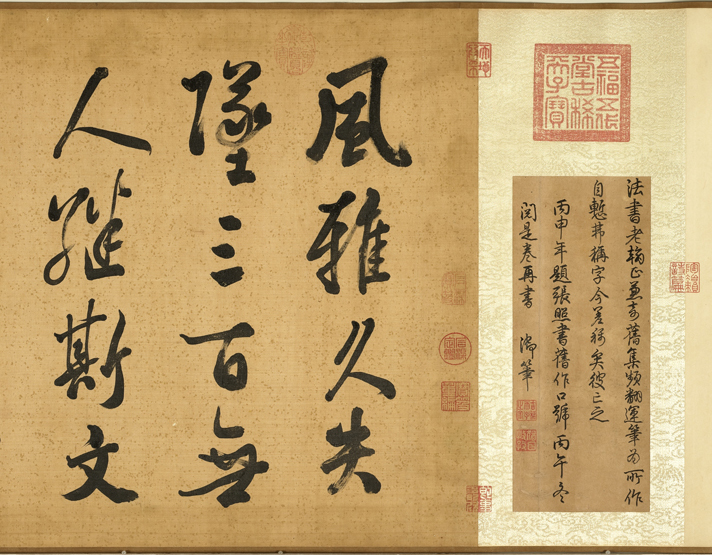 五福五代
堂古稀
天子寶
法書老翰正兼奇舊集頻翻運筆為所作
自慙弗稱字今差稱矣彼亡之
丙申年題張照書舊作口號丙午冬
閱是卷再書 御筆
風雅久失
墜三百無
人繼斯文